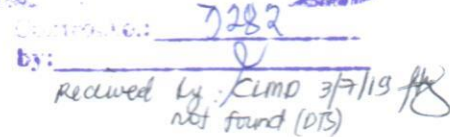 7282
by:
Received by: CLMD 3/7/19
not found (DTS)